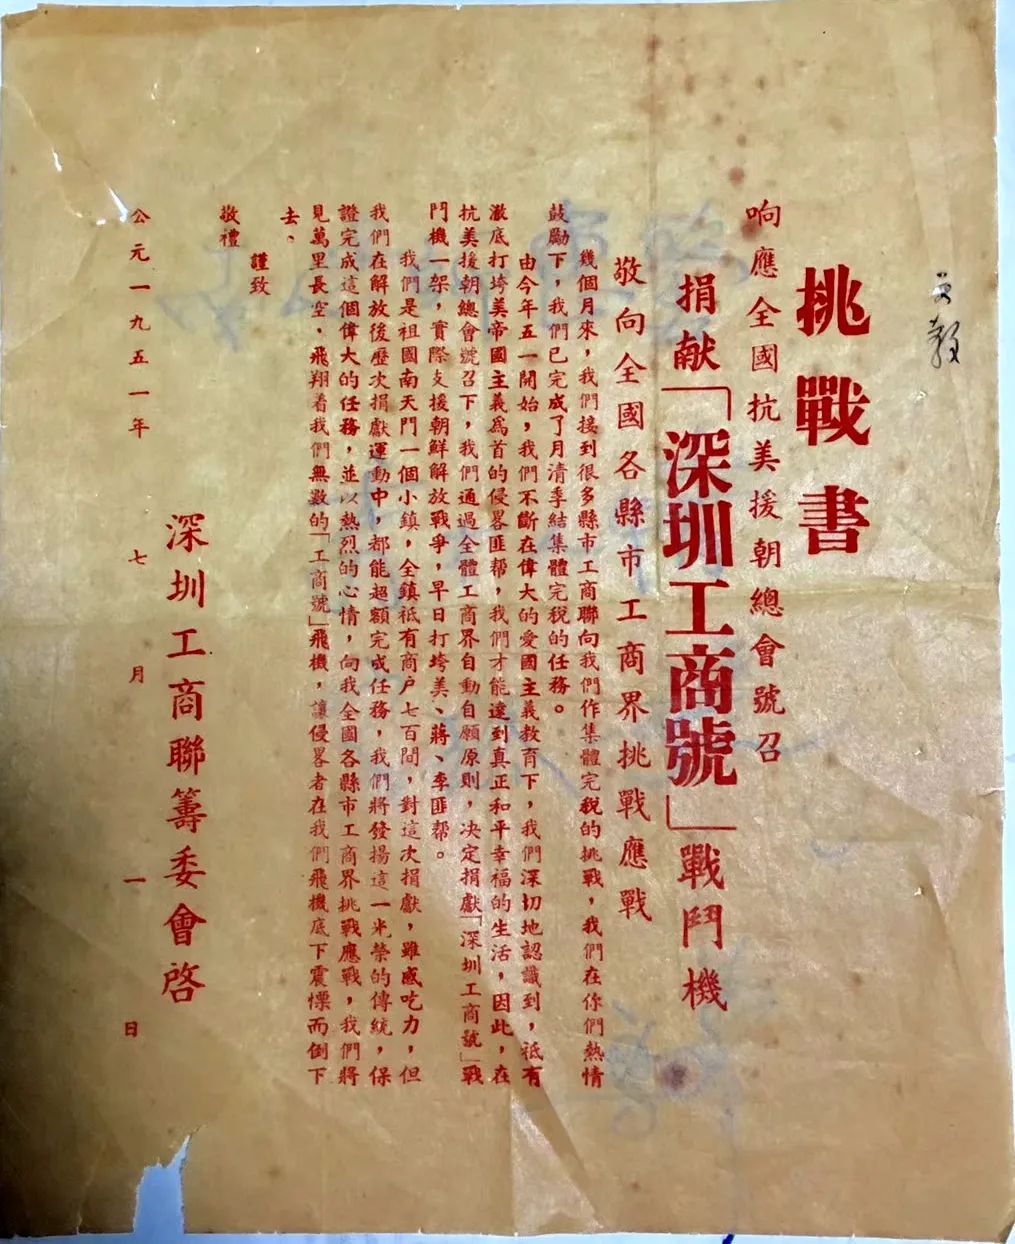 挑戰書
响應全國抗美援朝總會號召
捐献「深圳工商號」戰鬥機
敬向全國各縣市工商界挑戰應戰
幾個月來，我們接到很多縣市工商聯向我們作集體完稅的挑戰，我們在你們熱情
鼓勵下，我們已完成了月清季結集體完稅的任務。
由今年五一開始，我們不斷在偉大的愛國主義教育下，我們深切地認識到，祗有
澈底打垮美帝國主義爲首的侵畧匪帮，我們才能達到真正和平幸福的生活，因此，在
抗美援朝總會號召下，我們通過全體工商界自動自願原則，决定捐獻「深圳工商號」戰
鬥機一架，實際支援朝鮮解放戰爭，早日打垮美、蔣、李匪帮。
我們是祖國南天門一個小鎮，全鎮祗有商户七百間，對這次捐獻，雖感吃力，但
我們在解放後歷次捐獻運動中，都能超額完成任務，我們將發揚這一光榮的傳統，保
證完成這個偉大的任務，並以熱烈的心情，向我全國各縣市工商界挑戰應戰，我們將
見萬里長空，飛翔着我們無數的「工商號」飛機，讓侵畧者在我們飛機底下震慄而倒下
去。
謹致
敬禮
深圳工商聯籌委會啓
公元一九五一年 七月 一日